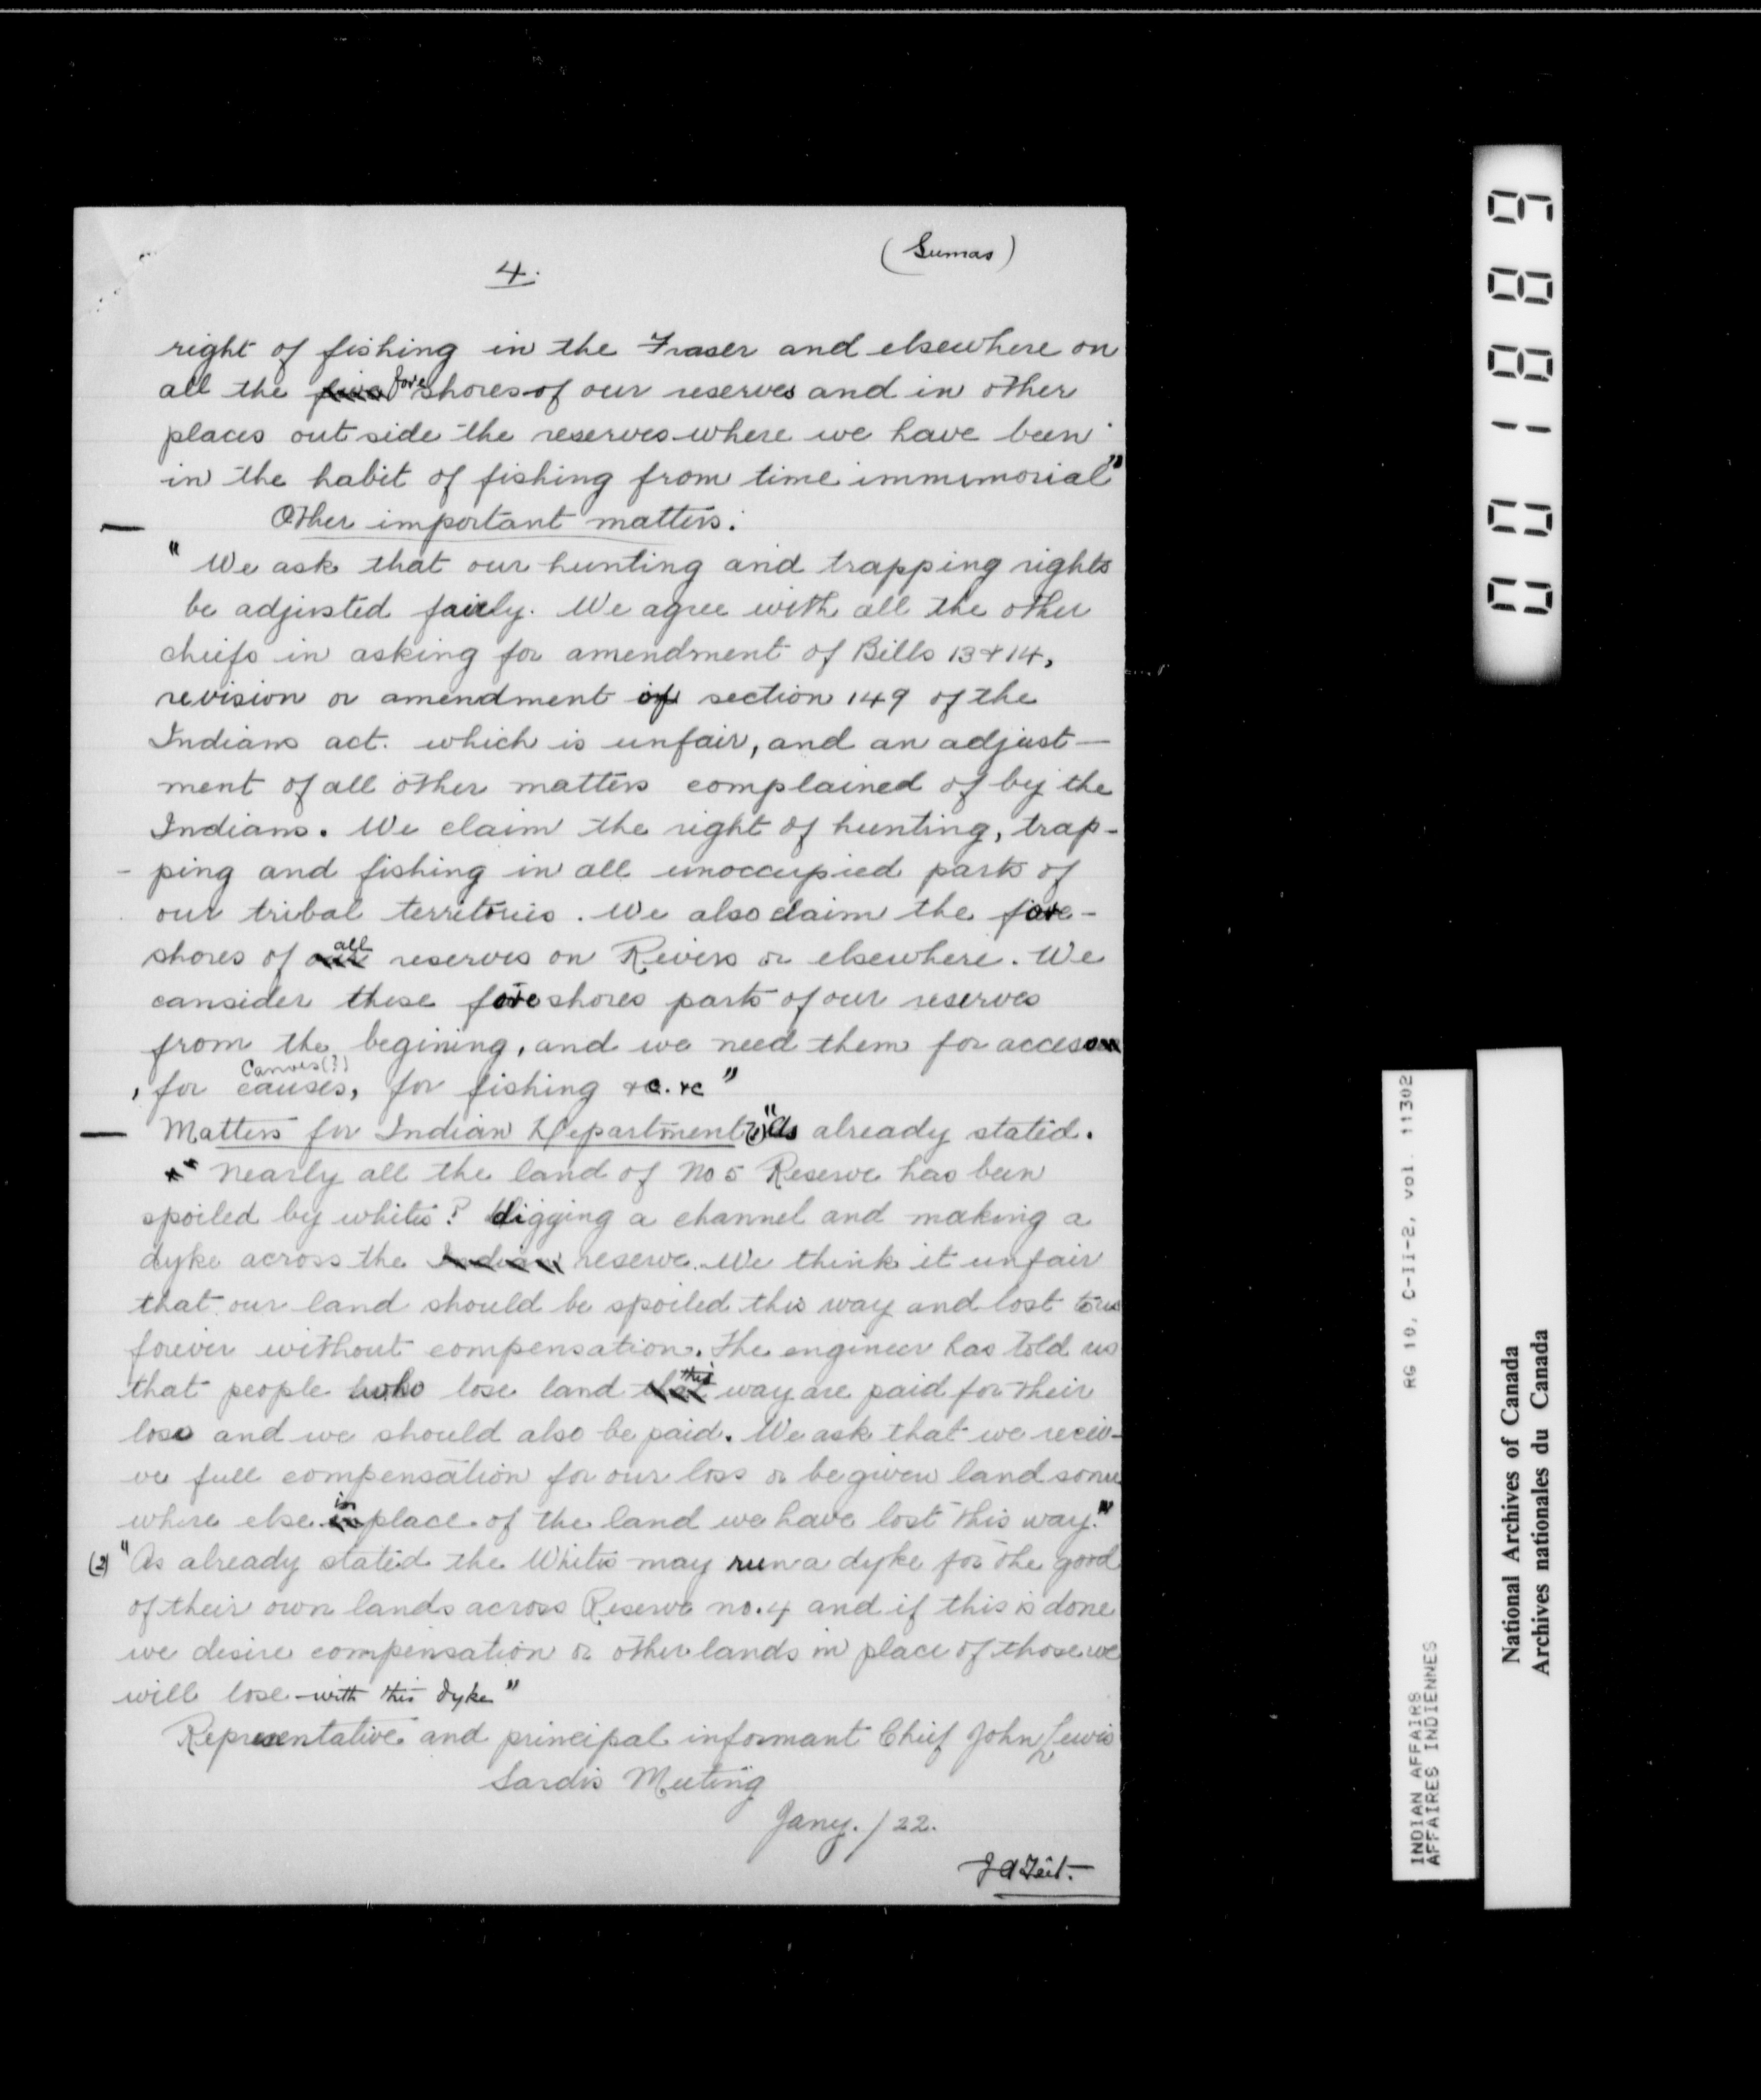 (Sumas)
4.
right of fishing in the Fraser and elsewhere on
all the fore shores of our reserves and in other
places out side the reserves where we have been
in the habit of fishing from time immimorial"
Other important matters.
"We ask that our hunting and trapping rights
be adjusted fairly. We agree with all the other
chiefs in asking for amendment of Bills 13 & 14,
revision or amendment of section 149 of the
Indians act. which is unfair, and an adjust-
ment of all other matters complained of by the
Indians. We claim the right of hunting, trap-
-ping and fishing in all unoccupied parts of
our tribal territories. We also claim the fore-
shores of all reserves on Rivers or elsewhere. We
cansider these foreshores parts of our reserves
from the begining, and we need them for access
Canoes(?)
, for causes, for fishing &c. &c"
Matters for Indian Department (1) "As already stated.
"Nearly all the land of No 5 Reserve has been
spoiled by whites? digging a channel and making a
dyke across the Indian reserve. We think it unfair
that our land should be spoiled this way and lost to us
forever without compensation. The engineer has told us
that people who lose land this way are paid for their
loss and we should also be paid. We ask that we recei-
ve full compensation for our loss or be given land some
where else in place of the land we have lost this way."
(2) "As already stated the Whites may run a dyke for the good
of their own lands across Reserve no. 4 and if this is done
we desire compensation or other lands in place of those we
will lose with this dyke"
Representative and principal informant Chief John Lewis
Sardis Meeting
Jany. / 22.
J A Teit.
0001889
RG 10, C-II-2, vol. 11302
INDIAN AFFAIRS
AFFAIRES INDIENNES
National Archives of Canada
Archives nationales du Canada